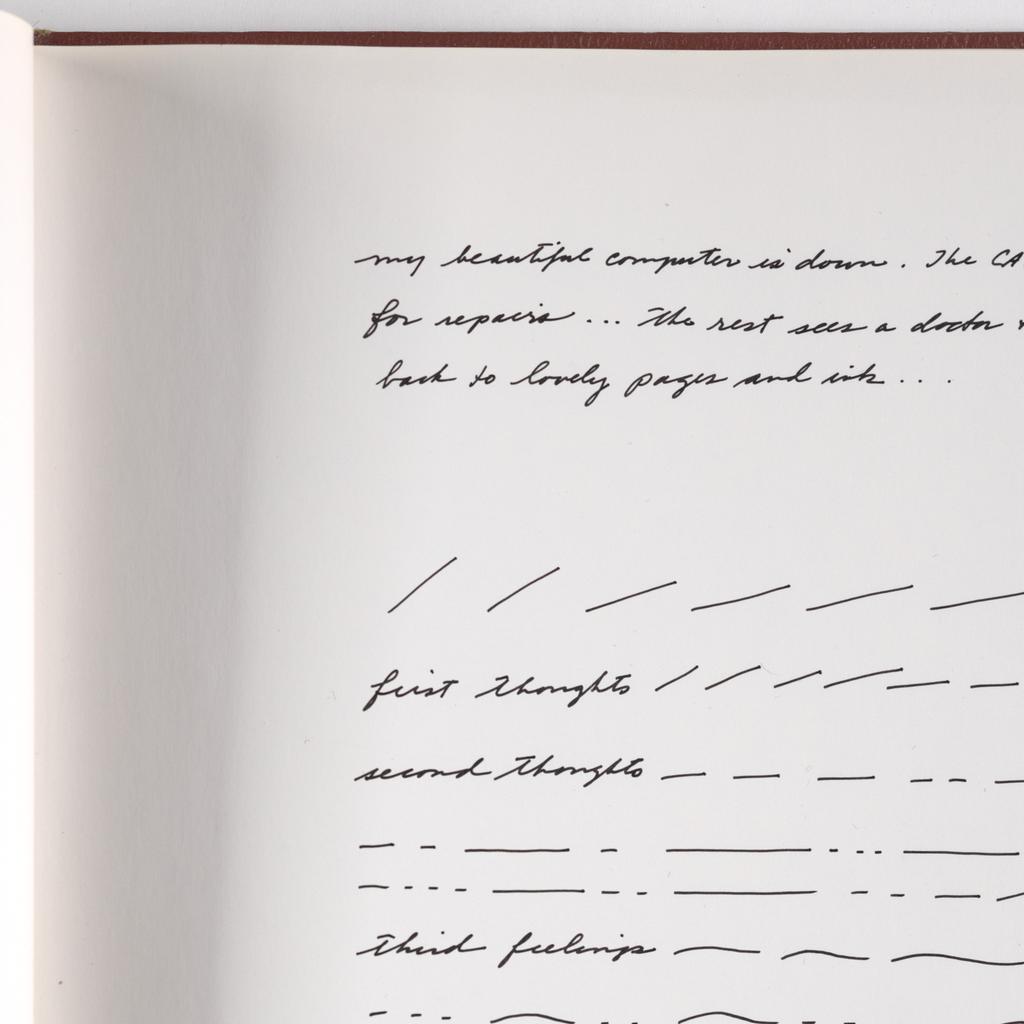 my beautiful computer is down. The CA
for repairs ... the rest sees a doctor
back to lovely pages and ink ...
first thoughts
second thoughts
third feelings